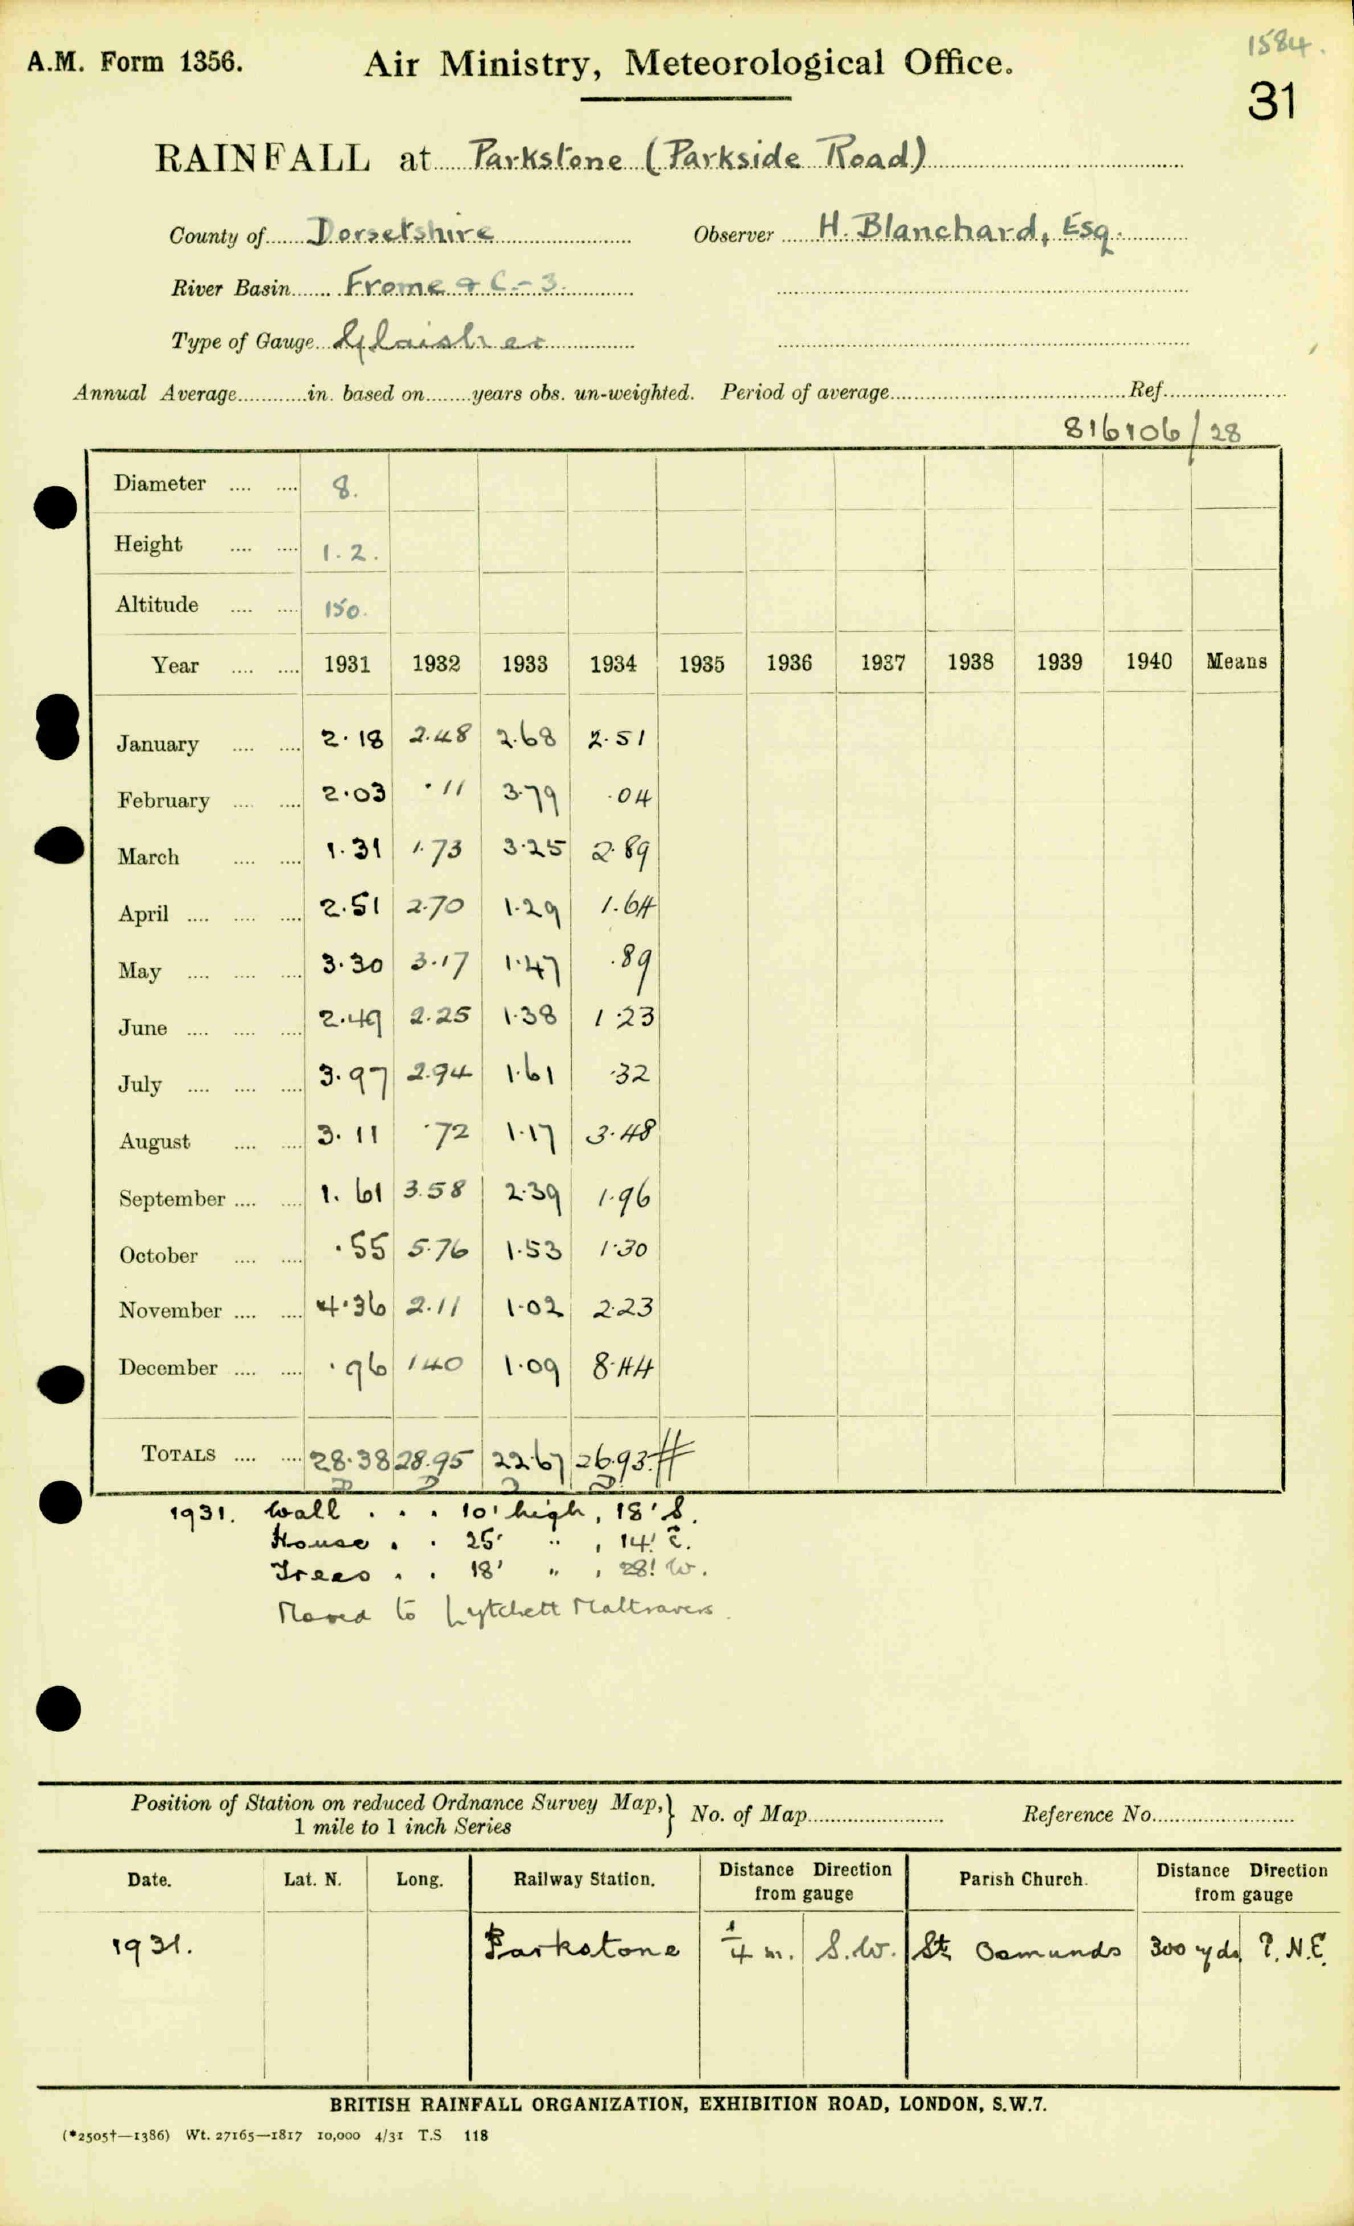 1584.
A.M. Form 1356. Air Ministry, Meteorological Office.
31
RAINFALL at Parkstone (Parkside Road)
County of Dorsetshire Observer H. Blanchard, Esq.
River Basin Frome & C - 3.
Type of Gauge Glaisher
Annual Average in. based on years obs. un-weighted. Period of average Ref.
816106/28
Diameter 8.
Height 1.2.
Altitude 150.
Year 1931 1932 1933 1934 1935 1936 1937 1938 1939 1940 Means
January 2.18 2.48 2.68 2.51
February 2.03 .11 3.79 .04
March 1.31 1.73 3.25 2.89
April 2.51 2.70 1.29 1.64
May 3.30 3.17 1.47 .89
June 2.49 2.25 1.38 1.23
July 3.97 2.94 1.61 .32
August 3.11 .72 1.17 3.48
September 1.61 3.58 2.39 1.96
October .55 5.76 1.53 1.30
November 4.36 2.11 1.02 2.23
December .96 1.40 1.09 8.44
TOTALS 28.38 28.95 22.67 26.93 #
1931. Wall . . . 10' high, 18' S.
House . . 25' " , 14' E.
Trees . . 18' " , 28' W.
Moved to Lytchett Maltravers.
Position of Station on reduced Ordnance Survey Map, } No. of Map Reference No.
1 mile to 1 inch Series
Date. Lat. N. Long. Railway Station. Distance Direction from gauge Parish Church. Distance Direction from gauge
1931. Parkstone 1/4 m. S.W. St Osmunds 300 yds ?. N.E.
BRITISH RAINFALL ORGANIZATION, EXHIBITION ROAD, LONDON, S.W.7.
(*2505†—1386) Wt. 27165—1817 10,000 4/31 T.S 118